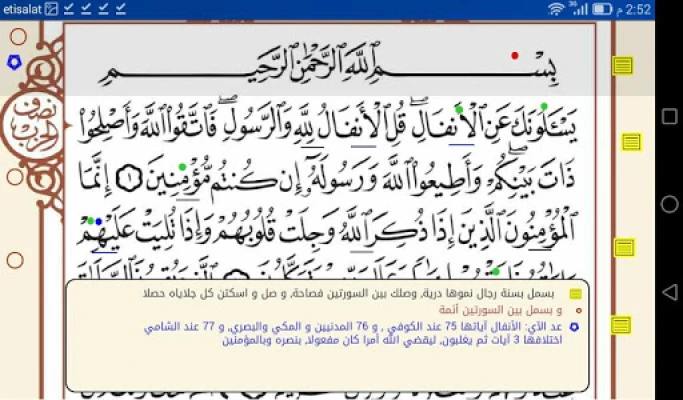 etisalat
3G
2:52 م
بِسْمِ اللَّهِ الرَّحْمَٰنِ الرَّحِيمِ
نصف الحزب
يَسْـَٔلُونَكَ عَنِ الْأَنفَالِ قُلِ الْأَنفَالُ لِلَّهِ وَالرَّسُولِ فَاتَّقُوا اللَّهَ وَأَصْلِحُوا
ذَاتَ بَيْنِكُمْ وَأَطِيعُوا اللَّهَ وَرَسُولَهُ إِن كُنتُم مُّؤْمِنِينَ ١ إِنَّمَا
الْمُؤْمِنُونَ الَّذِينَ إِذَا ذُكِرَ اللَّهُ وَجِلَتْ قُلُوبُهُمْ وَإِذَا تُلِيَتْ عَلَيْهِمْ
بسمل بسنة رجال نموها درية, وصلك بين السورتين فصاحة, و صل و اسكتن كل جلاياه حصلا
و بسمل بين السورتين أئمة
عد الآي: الأنفال آياتها 75 عند الكوفي , و 76 المدنيين و المكي والبصري, و 77 عند الشامي
اختلافها 3 آيات ثم يغلبون, ليقضي الله أمرا كان مفعولا, بنصره وبالمؤمنين